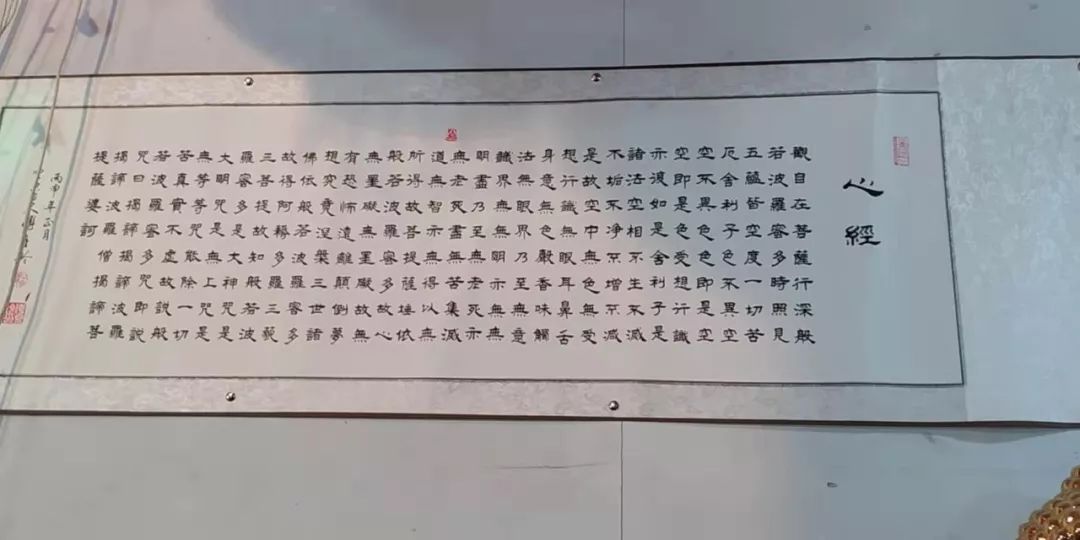 心經
觀自在菩薩行深般
若波羅密多時照見
五蘊皆空度一切苦
厄舍利子色不異空
空不異色色即是空
空即是色受想行識
亦復如是舍利子是
諸法空相不生不滅
不垢不净不增不減
是故空中無色無受
想行識無眼耳鼻舌
身意無色聲香味觸
法無眼界乃至無意
識界無無明亦無無
明盡乃至無老死亦
無老死盡無苦集滅
道無智亦無得以無
所得故菩提薩埵依
般若波羅密多故心
無罣礙無罣礙故無
有恐怖遠離顛倒夢
想究竟涅槃三世諸
佛依般若波羅密多
故得阿耨多羅三藐
三菩提故知般若波
羅密多是大神咒是
大明咒是無上咒是
無等等咒能除一切
苦真實不虛故說般
若波羅密多咒即說
咒曰揭諦揭諦波羅
揭諦波羅僧揭諦菩
提薩婆訶
丙申年正月